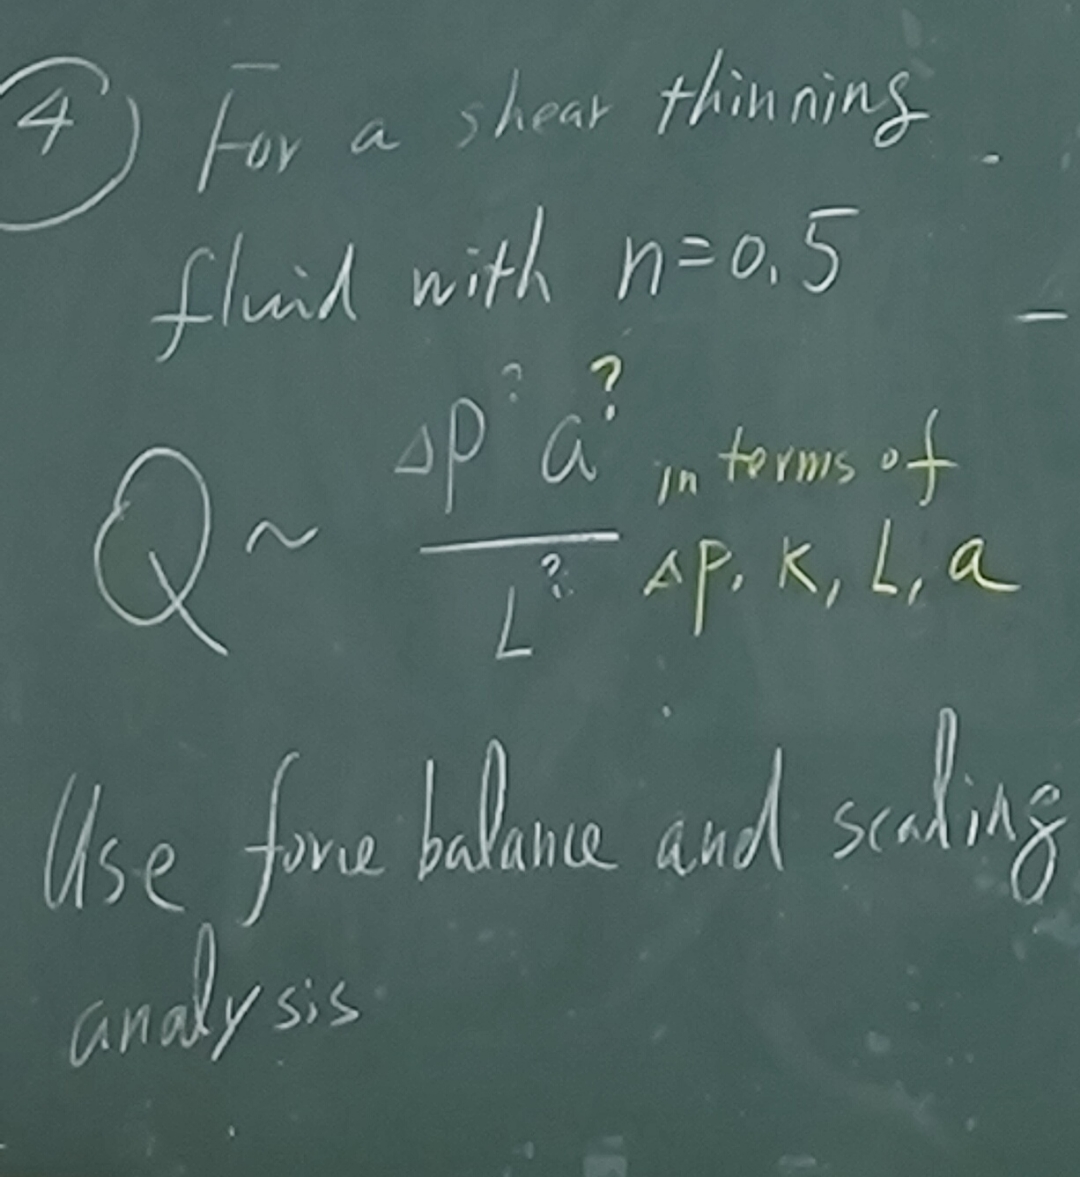 4 For a shear thinning
fluid with n=0.5
Q ~ ΔP? a? / L? in terms of
ΔP, K, L, a
Use force balance and scaling
analysis